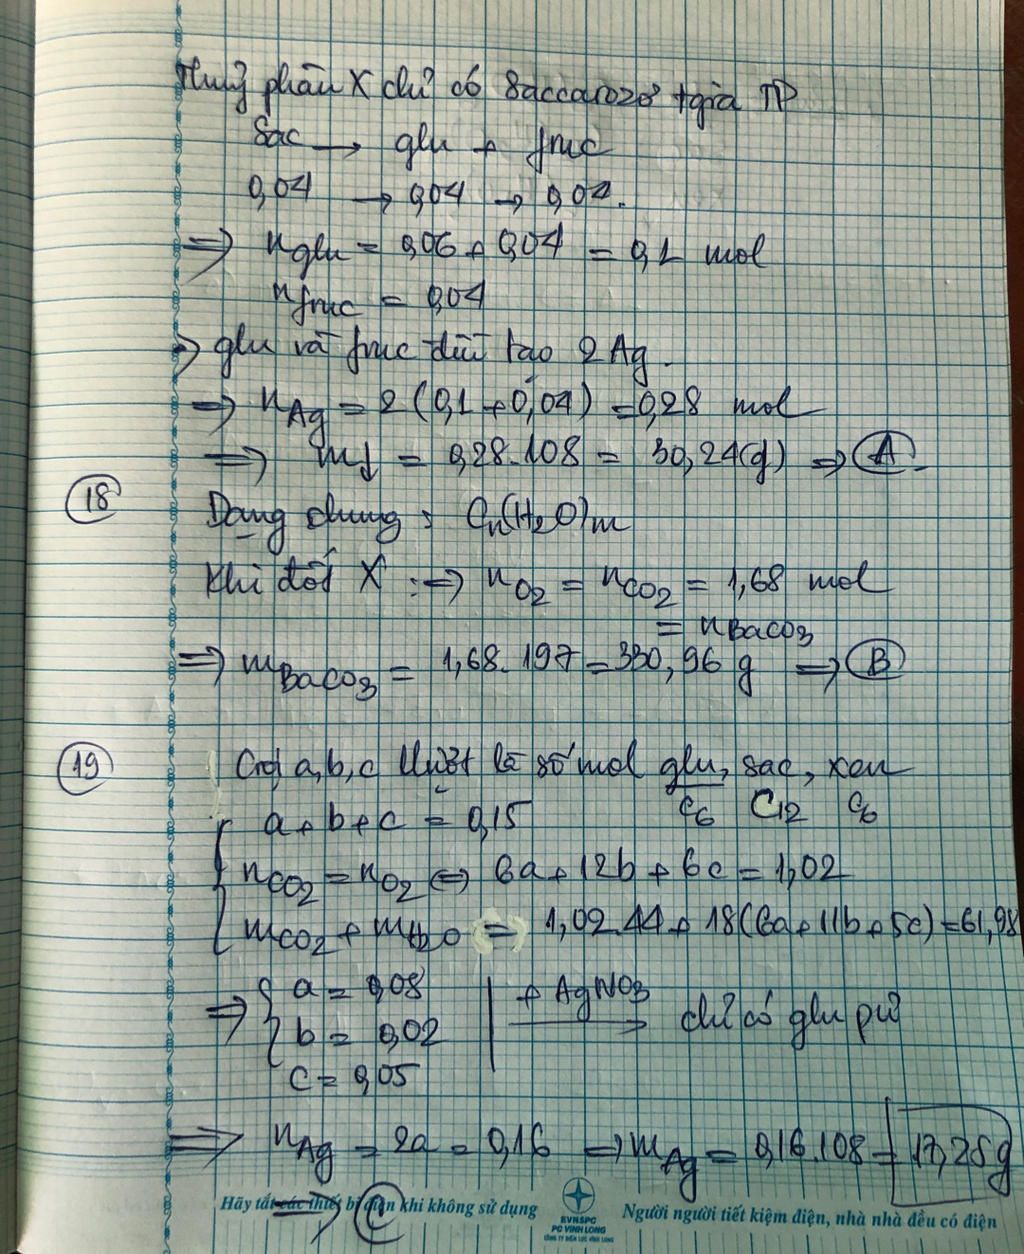 Thuỷ phân X chỉ có Saccarozơ tgia TP
Sac → glu + fruc
0,04 → 0,04 → 0,04.
⇒ nglu = 0,06 + 0,04 = 0,1 mol
nfruc = 0,04
⇒ glu và fruc đều tạo 2Ag.
⇒ nAg = 2(0,1 + 0,04) = 0,28 mol
⇒ m↓ = 0,28.108 = 30,24(g) ⇒ A.
18 Dạng chung: Cn(H2O)m
Khi đốt X: ⇒ nO2 = nCO2 = 1,68 mol
= nBaCO3
⇒ mBaCO3 = 1,68.197 = 330,96 g ⇒ B
19 Gọi a,b,c lần lượt là số mol glu, sac, xen
C6 C12 C6
a + b + c = 0,15
nCO2 = nO2 ⇔ 6a + 12b + 6c = 1,02
mCO2 + mH2O = 1,02.44 + 18(6a + 11b + 5c) = 61,98
⇒ a = 0,08
b = 0,02
c = 0,05
+ AgNO3 → chỉ có glu pứ
⇒ nAg = 2a = 0,16 ⇒ mAg = 0,16.108 = 17,28g
⇒ C
Hãy tắt các thiết bị điện khi không sử dụng
EVNSPC
PC VINH LONG
CÔNG TY ĐIỆN LỰC VĨNH LONG
Người người tiết kiệm điện, nhà nhà đều có điện